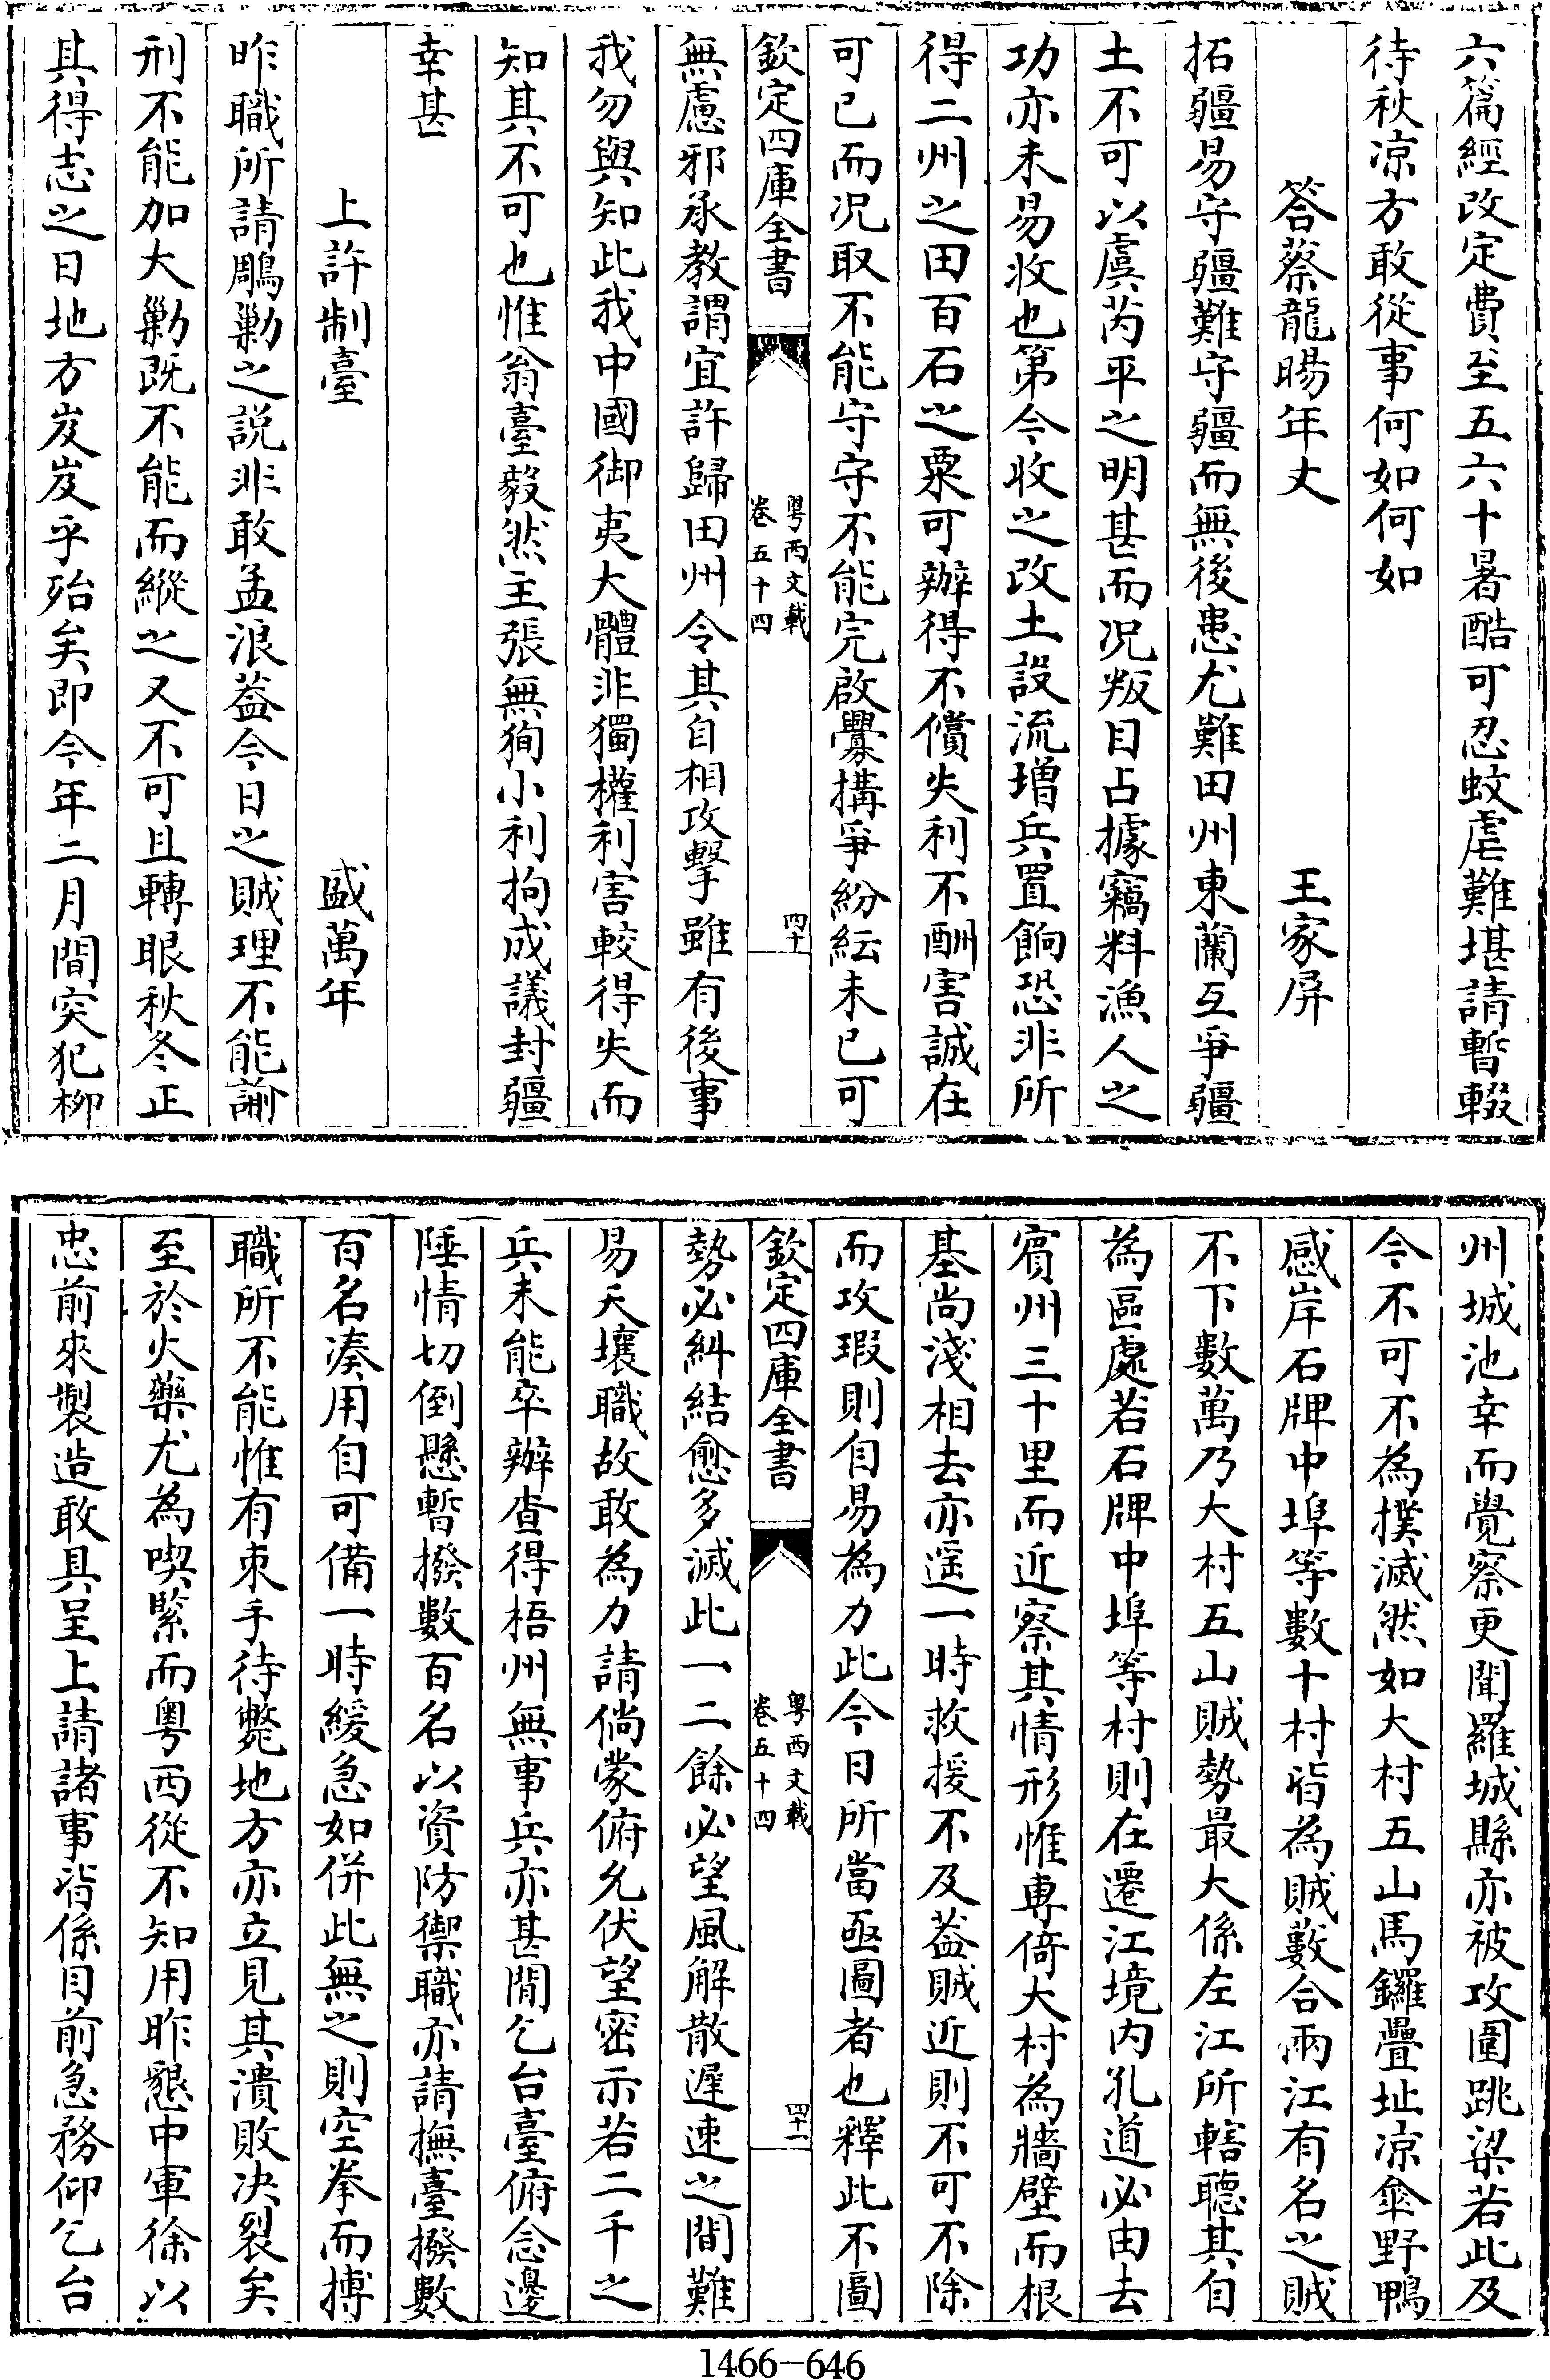 六篇經改定費至五六十暑酷可忍蚊虐難堪請暫輟
待秋凉方敢從事何如何如
答蔡龍暘年丈 王家屏
拓疆易守疆難守疆而無後患尤難田州東蘭互爭疆
土不可以虞芮平之明甚而况叛目占據竊料漁人之
功亦未易收也第今收之改土設流增兵置餉恐非所
得二州之田百石之粟可辦得不償失利不酬害誠在
可已而况取不能守守不能完啟釁搆爭紛紜未已可
欽定四庫全書 粤西文載 卷五十四 四十
無慮邪承教謂宜許歸田州令其自相攻擊雖有後事
我勿與知此我中國御夷大體非獨權利害較得失而
知其不可也惟翁臺毅然主張無狥小利拘成議封疆
幸甚
上許制臺 盛萬年
昨職所請鵰勦之説非敢孟浪葢今日之賊理不能諭
刑不能加大勦既不能而縱之又不可且轉眼秋冬正
其得志之日地方岌岌乎殆矣即今年二月間突犯柳
州城池幸而覺察更聞羅城縣亦被攻圍跳梁若此及
今不可不為撲滅然如大村五山馬鑼疊址凉傘野鴨
感岸石牌中埠等數十村皆為賊藪合兩江有名之賊
不下數萬乃大村五山賊勢最大係左江所轄聽其自
為區處若石牌中埠等村則在遷江境内孔道必由去
賓州三十里而近察其情形惟專倚大村為牆壁而根
基尚淺相去亦遥一時救援不及葢賊近則不可不除
而攻瑕則自易為力此今日所當亟圖者也釋此不圖
欽定四庫全書 粤西文載 卷五十四 四十一
勢必糾結愈多滅此一二餘必望風解散遲速之間難
易天壤職故敢為力請倘蒙俯允伏望密示若二千之
兵未能卒辦查得梧州無事兵亦甚閒乞台臺俯念邊
陲情切倒懸暫撥數百名以資防禦職亦請撫臺撥數
百名凑用自可備一時緩急如併此無之則空拳而搏
職所不能惟有束手待斃地方亦立見其潰敗决裂矣
至於火藥尤為喫緊而粤西從不知用昨懇中軍徐以
忠前來製造敢具呈上請諸事皆係目前急務仰乞台
1466-646